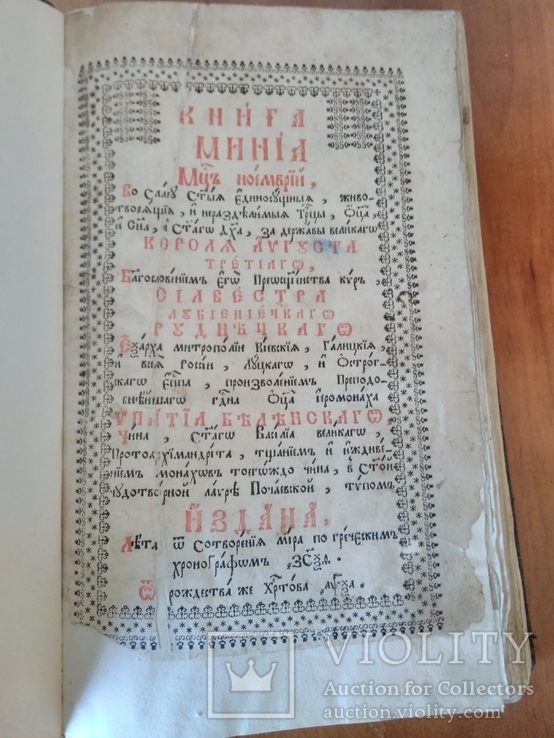 КНИ́ГА
МИНІ́А
Мц҃ъ ноі́мврїй,
Во Сла́ву Ст҃ы́ѧ Єдиносу́щныѧ, живо-
творѧ́щїѧ, и҆ нераздѣли́мыѧ Трⷪ҇цы, Ѻ҆ц҃а̀,
и҆ Сн҃а, и҆ Ст҃а́гѡ Дх҃а, за держа́вы вели́кагѡ
КОРОЛѦ̀ А҆́ѴГѸСТА
ТРЕ́ТІАГѠ,
Благослове́нїемъ Є҆гѡ̀ Преѡсщ҃е́нства кѵ́ръ,
СІЛВЕ́СТРА
ЛѸБІЕНІЕ́ЦКАГѠ
РѸДНѢ́ЦКАГѠ
Є҆ѯа́рха митропо́лїи Кі́евскїѧ, Га́лицкїѧ,
и҆ всеѧ̀ Росі́и, Лу́цкагѡ, и҆ Ѻ҆стро́г-
скагѡ Є҆пⷭ҇па, произволе́нїемъ Преподо́-
бнѣ́йшагѡ гдⷭ҇на Ѻ҆ц҃а̀ і҆еромона́ха
Ѵ҆ПА́ТІА БѢЛѢ́НСКАГѠ,
Чи́на, Ст҃а́гѡ Васі́лїа вели́кагѡ,
Протоархїмандрі́та, тща́нїемъ и҆ и҆ждиве́-
нїемъ мона́хѡвъ тогѡ́жде чи́на, в Ст҃о́й
чудотво́рной ла́врѣ Поча́евской, тѵ́помъ
И҆́ЗДАНА.
Лѣ́та ѿ Сотворе́нїѧ мі́ра по гре́ческимъ
хроно́графѡмъ
Ѿ рождества́ же Хрⷭ҇то́ва
VIOLITY
Auction for Collectors
auction.violity.com